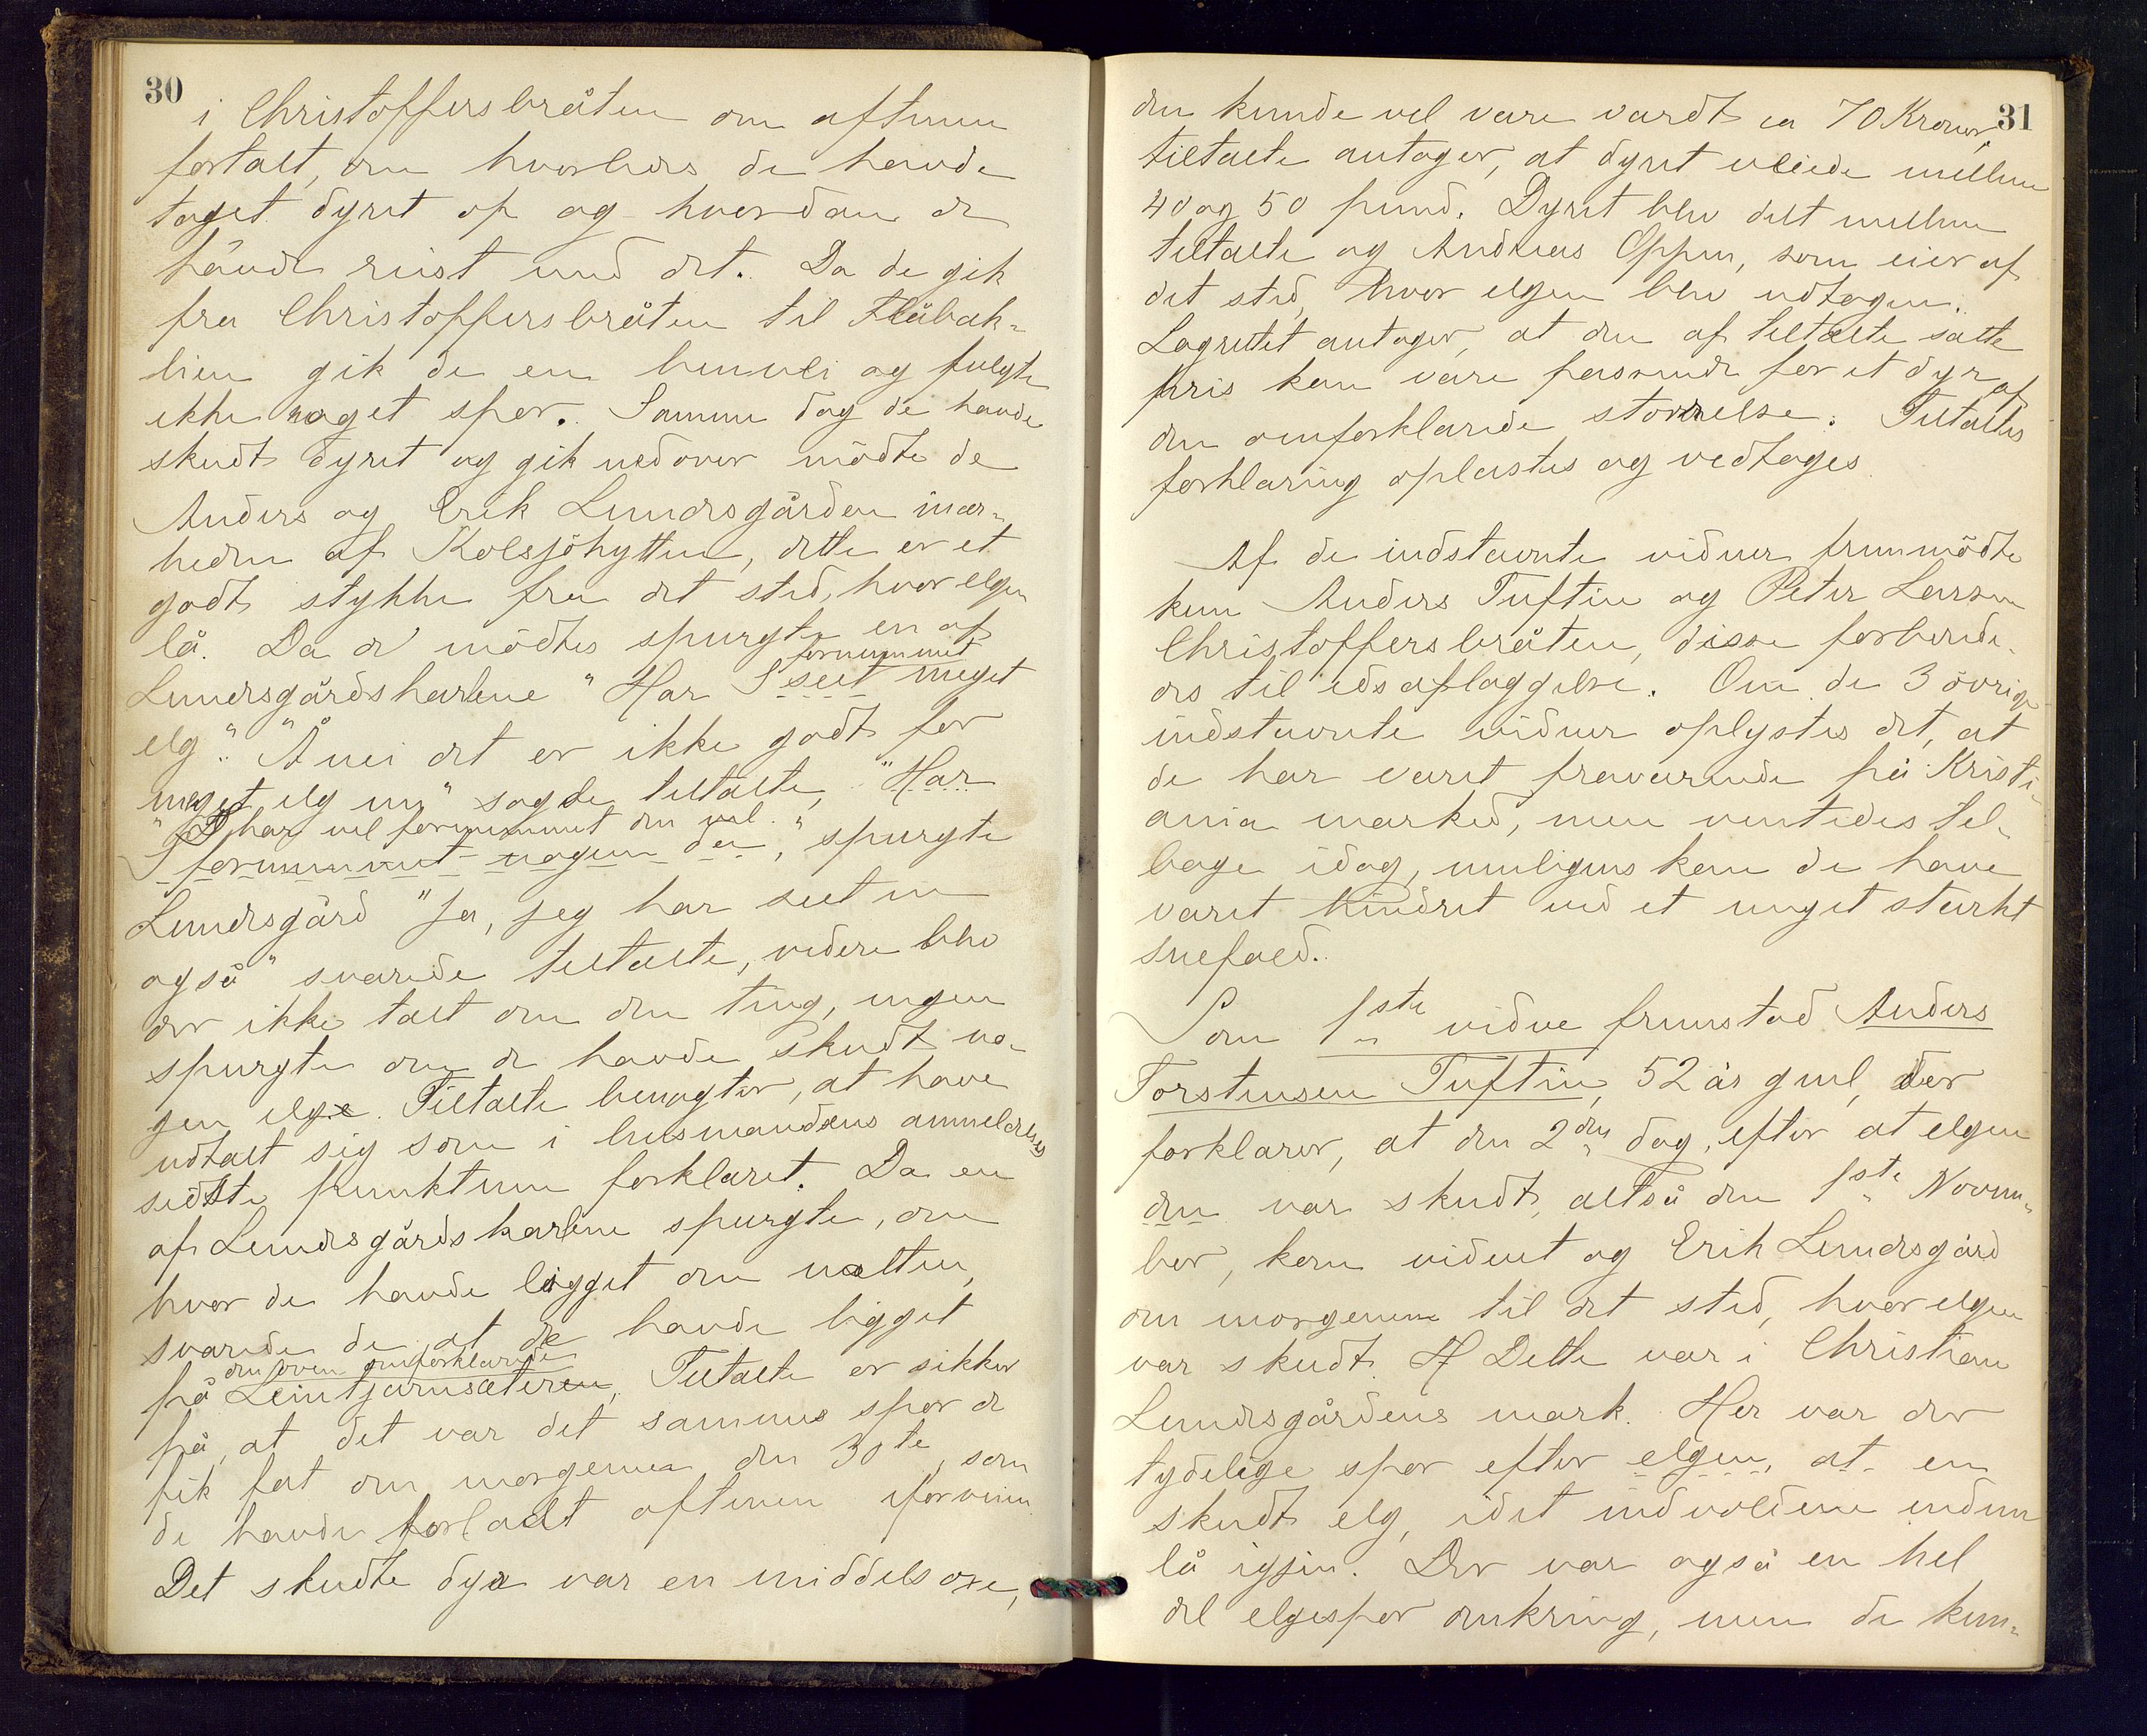 30
i Christoffersbråten om aftenen
fortalt, om hvorledes de havde
taget dyret op og hvordan de
havde reist med det. Da de gik
fra Christoffersbråten til Flåbak-
lien gik de en benvei og fulgte
ikke noget spor. Samme dag de havde
skudt dyret og gik nedover mödte de
Anders og Erik Lundsgården i nær-
heden af Kolsjöhytten, dette er et
godt stykke fra det sted, hvor elgen
lå. Da de mödtes spurgte en af
fornummet
Lundsgårdskarlene "Har I seet meget
elg". "Å nei det er ikke godt for
meget elg nu" sagde tiltalte, "Har
"I har vel fornummet den vel."
I fornummet nogen da", spurgte
Lundsgård "Ja, jeg har seet en
også" svarede tiltalte, videre blev
der ikke talt om den ting, ingen
spurgte om de havde skudt no-
gen elg. Tiltalte benegter, at have
udtalt sig som i lensmandens anmeldelses
sidste punktum forklaret. Da en
af Lundsgårdskarlene spurgte, om
hvor de havde ligget om natten,
svarede de at de havde ligget
den oven omforklarede
på Leintjernsæteren, Tiltalte er sikker
på, at det var det samme spor de
fik fat om morgenen den 30te, som
de havde forladt aftenen iforveien
Det skudte dyr var en middels oxe,
31
den kunde vel være værdt ca 70 Kroner,
tiltalte antager, at dyret veiede mellem
40 og 50 pund. Dyret blev delt mellem
tiltalte og Andreas Oppen, som eier af
det sted, hvor elgen blev udtagen.
Lagretet antager, at den af tiltalte satte
pris kan være passende for et dyr af
den omforklarede störrelse. Tiltaltes
forklaring oplæstes og vedtoges
Af de indstævnte vidner fremmödte
kun Anders Tuftin og Peter Larsen
Christoffersbråten, disse forberede-
des til edsaflæggelse. Om de 3 övrige
indstævnte vidner oplystes det, at
de har været fraværende på Kristi-
ania marked, men ventedes til-
bage idag, muligens kan de have
været hindret ved et meget stærkt
snefald.
Som 1ste vidne fremstod Anders
Torstensen Tuftin, 52 år gml, der
forklarer, at den 2den dag, efter at elgen
den var skudt, altså den 1ste Novem-
ber, kom vidnet og Erik Lundsgård
om morgenen til det sted, hvor elgen
var skudt. Dette var i Christian
Lundsgårdens mark. Her var der
tydelige spor efter elgen, at en
skudt elg, idet indvoldene endnu
lå igjen. Der var også en hel
del elgespor omkring, men de kun-